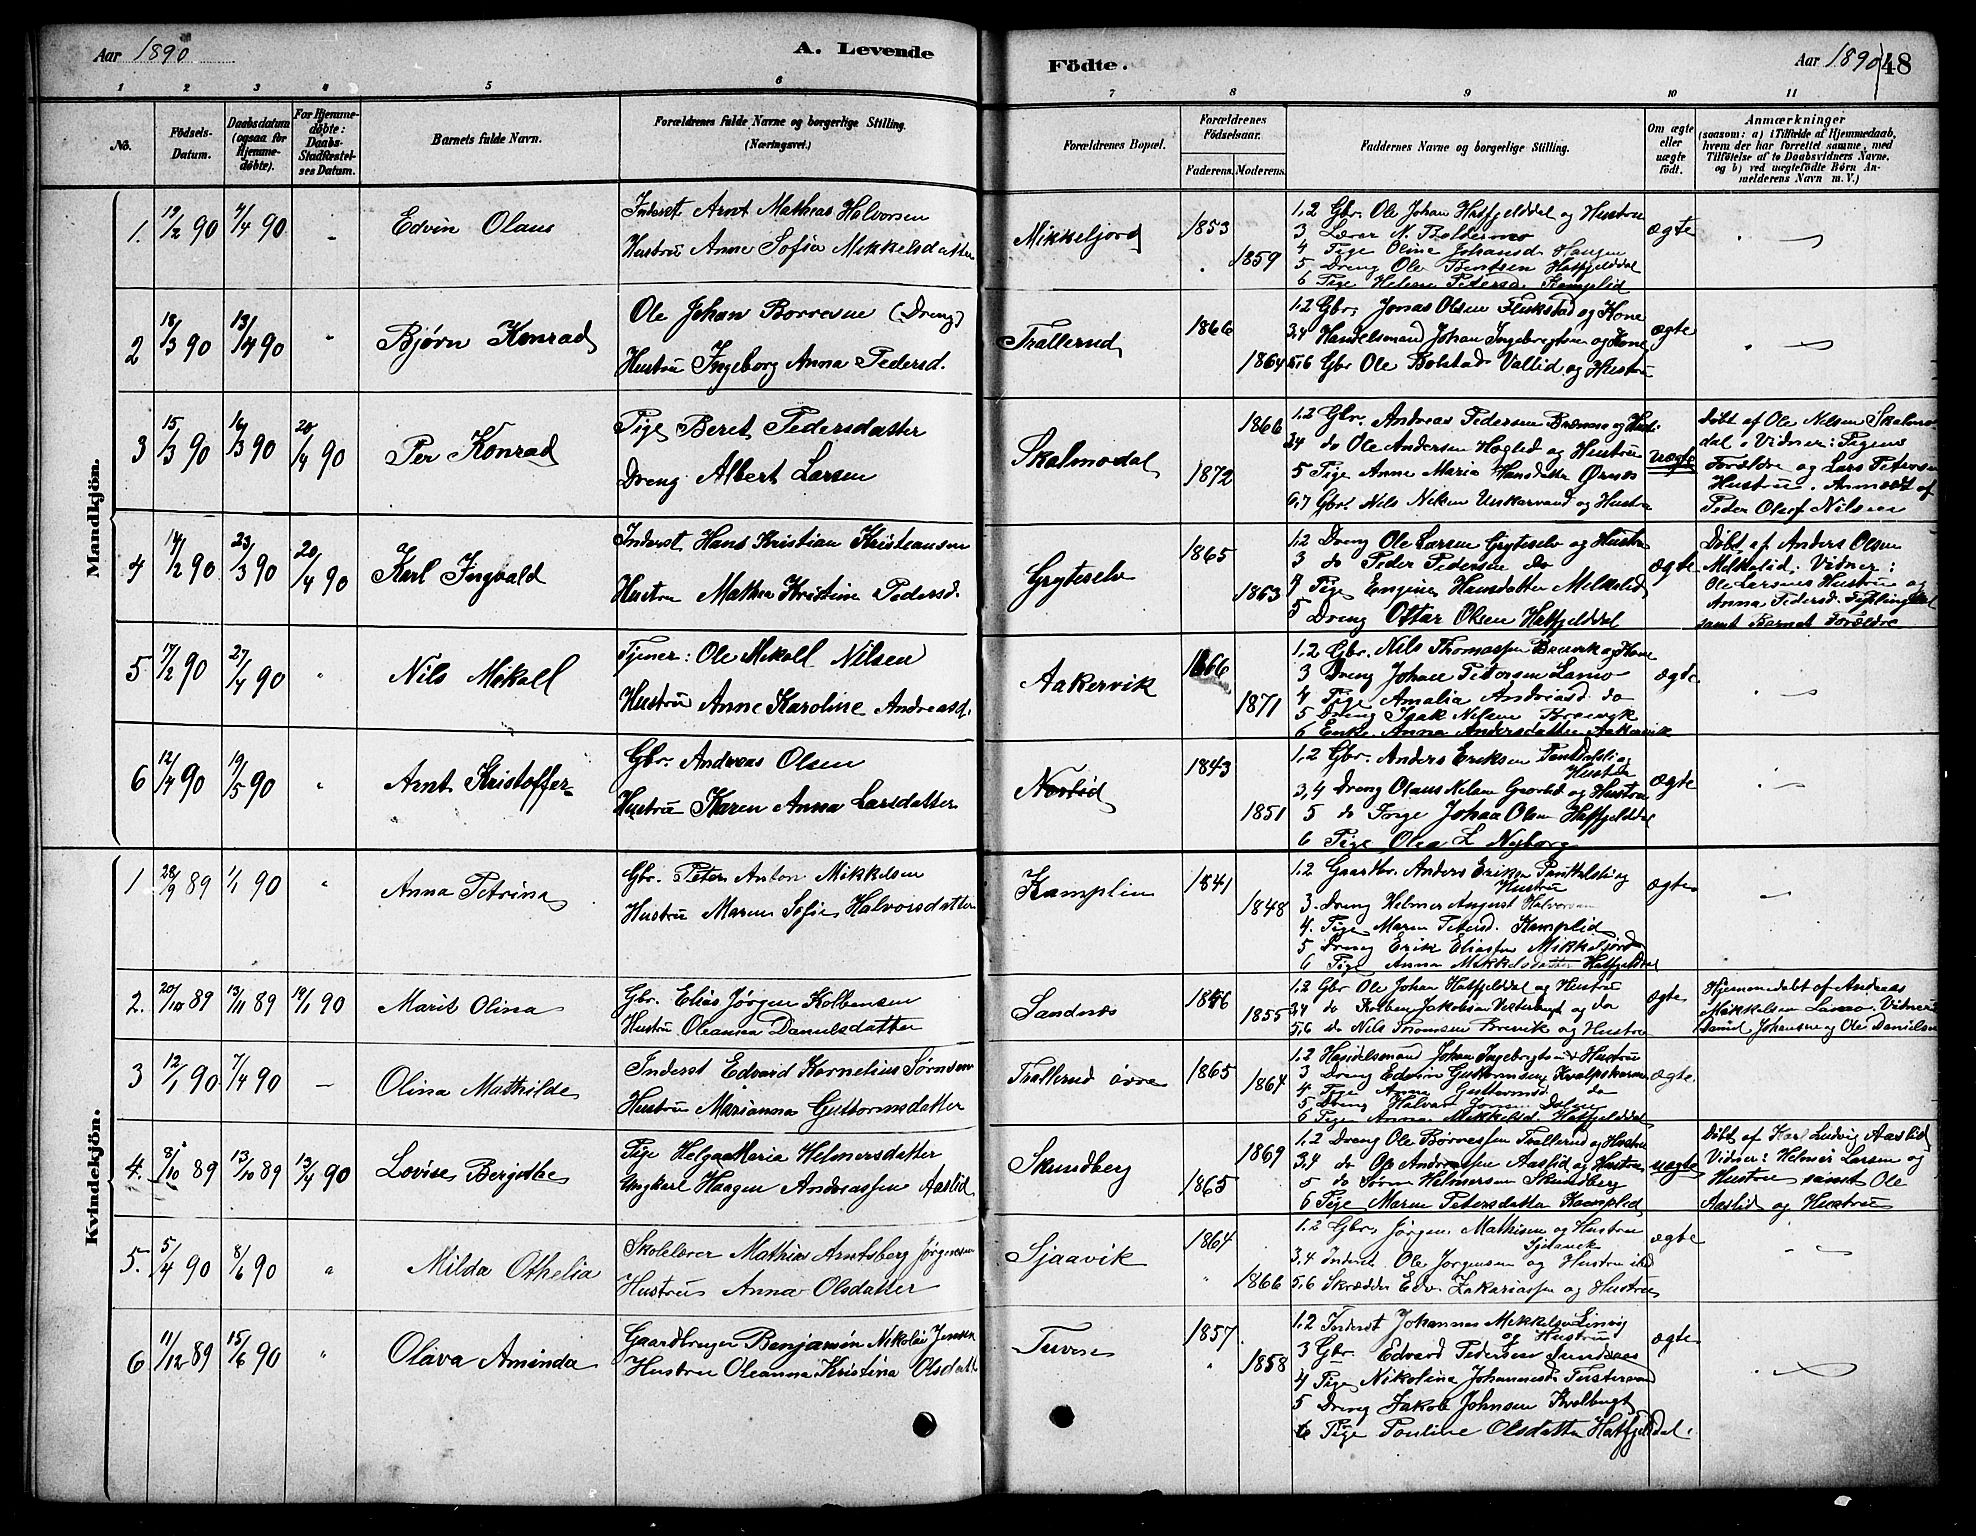 Aar 1890
A. Levende
Födte.
Aar 1890
48
1 2 3 4 5 6 7 8 9 10 11
No.
Födsels-Datum.
Daabsdatum (ogsaa for Hjemmedøbte).
For Hjemmedøbte: Daabs-Stadfæstelses Datum.
Barnets fulde Navn.
Forældrenes fulde Navne og borgerlige Stilling. (Næringsvei.)
Forældrenes Bopæl.
Forældrenes Födselsaar.
Faderens. Moderens.
Faddernes Navne og borgerlige Stilling.
Om ægte eller uægte født.
Anmærkninger
(saasom: a) i Tilfælde af Hjemmedaab, hvem der har forrettet samme, med Tilföielse af to Daabsvidners Navne, og b) ved uægtefödte Børn Anmelderens Navn m. V.)
Mandkjön.
1. 19/2 90 4/4 90 - Edvin Olaus
Inderst Arnt Mathias Halvorsen
Hustru Anne Sofia Mikkelsdatter
Mikkeljord 1853 1859
1,2 Gbr. Ole Johan Hatfjelddal og Hustru
3 Lærer N. Baldermo
4 Pige Oline Johansd. Haugen
5 Dreng Ole Bentsen Hatfjelddal
6 Pige Helene Petersd. Kamplid
ægte
2 18/3 90 13/4 90 " Bjørn Konrad
Ole Johan Borresen (Dreng)
Hustru Ingeborg Anna Pedersd.
Trallerud 1866 1864
1,2 Gbr. Jonas Olsen Flukstad og Kone
3,4 Handelsmand Johan Ingebrigtsen og Kone
5,6 Gbr Ole Bolstad Vallid og Hustru
ægte
3 15/3 90 16/3 90 20/4 90 Per Konrad
Pige Beret Pedersdatter
Dreng Albert Larsen
Skalmodal 1866 1872
1,2 Gbr. Andreas Pedersen Brænmo og Hustr.
3,4 do Ole Andersen Haglid og Hustru
5 Pige Anne Maria Hansdatter Ørnes
6,7 Gbr. Nils Nilsen Unskarvand og Hustru
uægte
Døbt af Ole Nilsen Skalmodal. Vidner: Pigens
Forældre og Lars Petersen
Hustru. Anmeldt af
Peder Oluf Nilsen
4 14/2 90 23/3 90 20/4 90 Karl Ingvald
Inderst Hans Kristian Kristiansen
Hustru Mathea Kristine Pedersd.
Gryteselv 1865 1863
1,2 Dreng Ole Larsen Gryteselv og Hustru
3 do Peder Pedersen do
4 Pige Engine Hansdatter Melkelid
5 Dreng Ottar Olsen Hatfjelddal
ægte
Døbt af Anders Olsen
Melkelid. Vidner:
Ole Larsens Hustru og
Anna Pedersd.
samt Barnets Forældre
5 17/2 90 27/4 90 " Nils Mikall
Tjener: Ole Mikall Nilsen
Hustru Anne Karoline Andreasd.
Aakervik 1866 1871
1,2 Gbr. Nils Thomassen Brevik og Kone
3 Dreng Johan Petersen Lamo
4 Pige Amalia Andreasd do
5 Dreng Isak Nilsen Brevik
6 Enke Anna Andersdatter Aakervik
ægte
6 12/4 90 19/5 90 " Arnt Kristoffer
Gbr. Andreas Olsen
Hustru Karen Anna Larsdatter
Norlid 1843 1851
1,2 Gbr. Anders Eriksen Pantdalsli og
Hustru
3,4 Dreng Olaus Nilsen Grønlid og Hustru
5 do Johan Olsen Hatfjelddal
6 Pige Olea L Nyborg
ægte
Kvindekjön.
1 28/9 89 1/1 90 " Anna Petrina
Gbr. Peter Anton Mikkelsen
Hustru Maren Sofie Halvorsdatter
Kamplin 1841 1848
1,2 Gaardbr. Anders Eriksen Pantdalsli og
Hustru
3. Dreng Helmer August Halvorsen
4. Pige Maren Petersd. Kamplid
5 Dreng Erik Eliassen Mikkeljord
6 Pige Anna Mikkelsdatter Hatfjelddal
ægte
2. 20/10 89 13/11 89 19/1 90 Marit Olina
Gbr. Elias Jørgen Kolbensen
Hustru Oleanna Danielsdatter
Sandnes 1846 1855
1,2 Gbr Ole Johan Hatfjelddal og Hustru
3,4 do Kolben Jakobsen Vesterbugt og do
5,6 do Nils Tromsen Brevik og Hustru
ægte
Hjemmedøbt af Andreas
Mikkelsen Lamo. Vidner:
Daniel Johansen og Ole Danielsen
3 12/1 90 7/4 90 - Olina Mathilde
Inderst Edvard Kornelius Sørensen
Hustru Marianna Guttormsdatter
Trallerud øvre 1865 1864
1,2 Handelsmand Johan Ingebrigtsen & Hustru
3 Dreng Edvin Guttormsen Kvalpskaren
4 Pige Anna Guttormsd do
5 Dreng Halvar Jonsen Dalen
6 Pige Anna Mikkelsd. Hatfjelddal
ægte
4. 8/10 89 13/10 89 13/4 90 Lovise Bergithe
Pige Helga Maria Helmersdatter
Ungkarl Haagen Andreassen Aaslid
Skundberg 1869 1865
1,2 Dreng Ole Børresen Trallerud og Hustru
3,4 do Ole Andreassen Aaslid og Hustru
5 do Søren Helmersen Skundberg
6 Pige Maren Petersdatter Kamplid
uægte
Døbt af Karl Ludvig Aaslid
Vidner: Helmer Larsen og
Hustru samt Ole
Aaslid og Hustru
5. 5/4 90 8/6 90 " Milda Othelia
Skolelærer Mathias Arntsberg Jørgensen
Hustru Anna Olsdatter
Sjaavik 1864 1866
1,2 Gbr. Jørgen Mathisen og Hustru
3,4 Inderst Ole Jørgensen og Hustru ibid
5,6 Skrædder Edv. Zakariassen og Hustru
ægte
6 11/12 89 15/6 90 " Olava Aminda
Gaardbruger Benjamin Nikolai Jensen
Hustru Oleanna Kristina Olsdatter
Tuven 1857 1858
1,2 Inderst Johannes Mikkelsen
og Hustru
3 Gbr. Edvard Pedersen Sundsaas
4 Pige Nikolina Johannesd. Tustervand
5 Dreng Jakob Johnsen Kvalbugt
6 Pige Pauline Olsdatter Hatfjelddal.
ægte